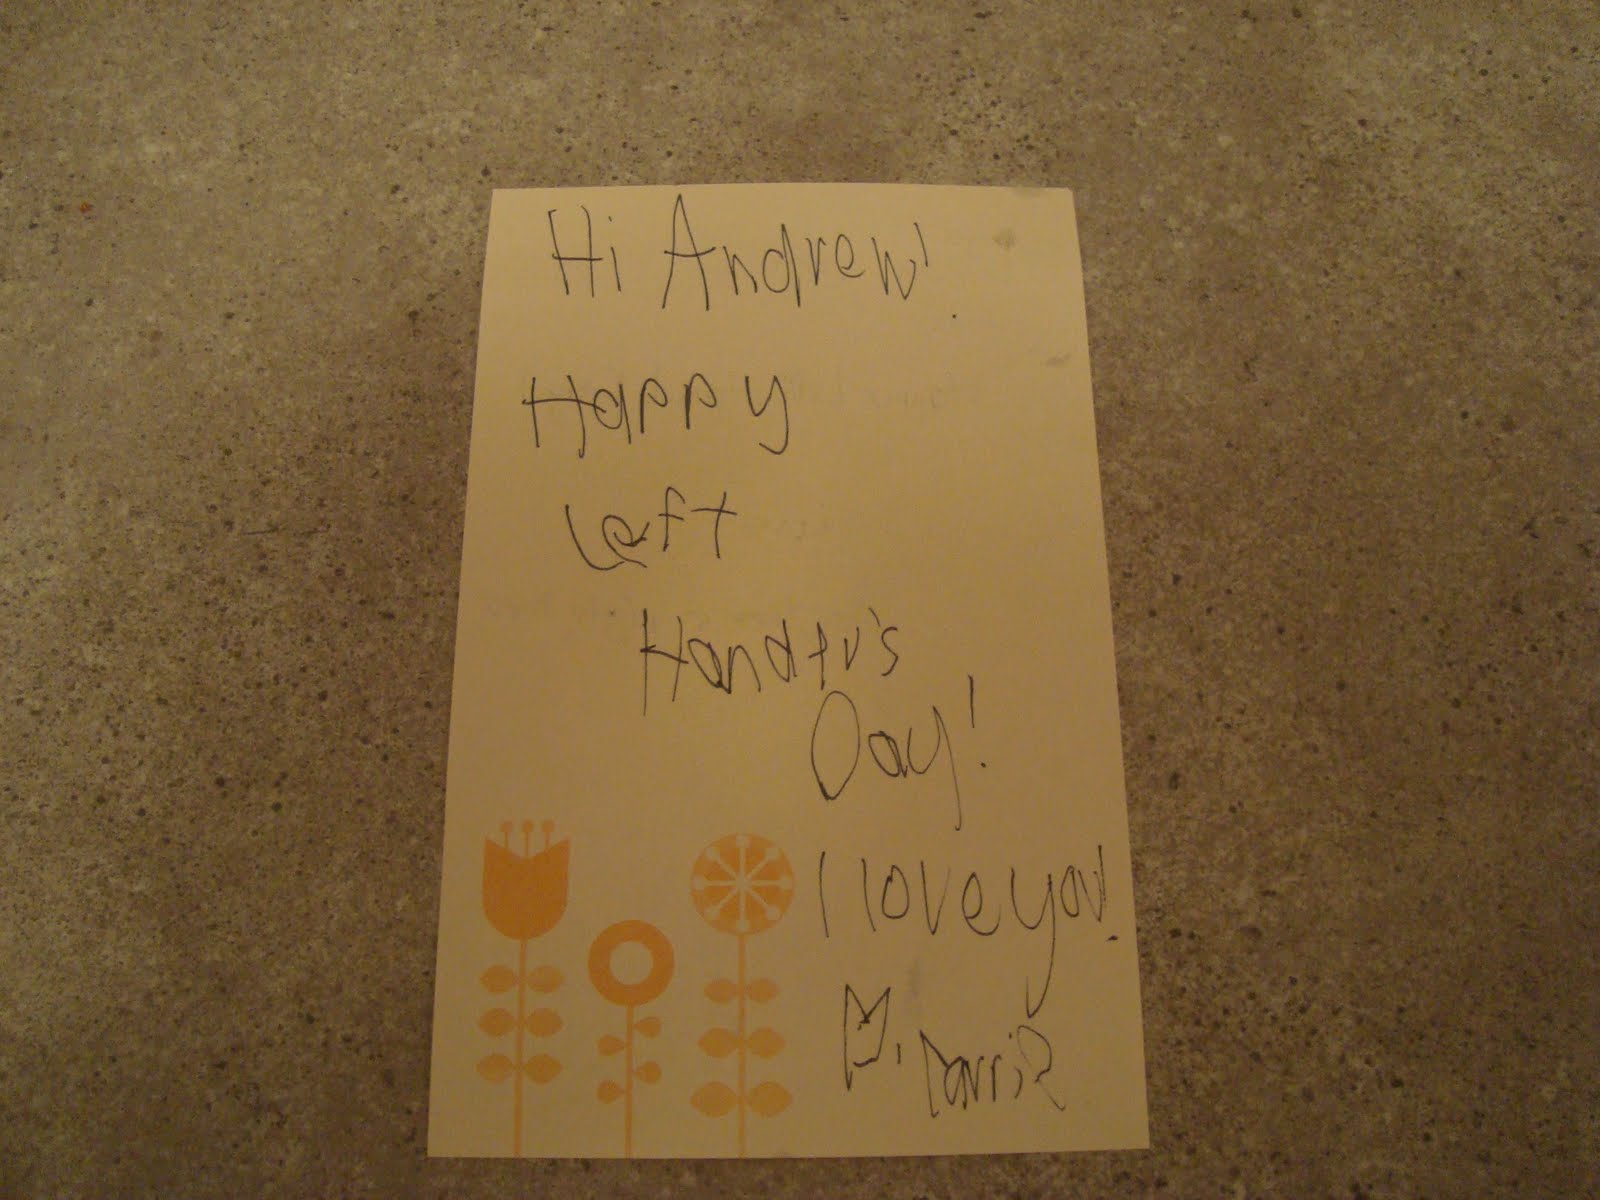 Hi Andrew!
Happy
Left
Hander's
Day!
I love you!